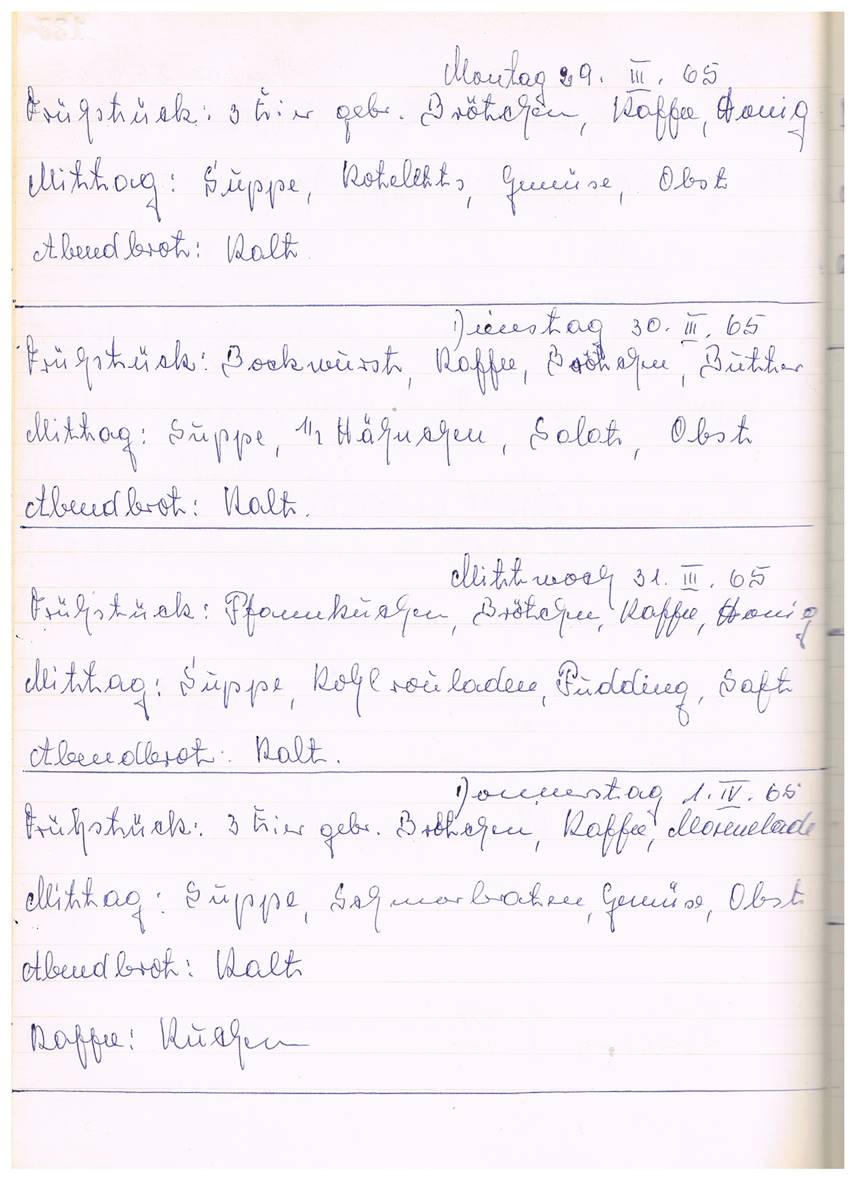 Montag 29. III. 65
Frühstück: 3 Eier gebr. Brötchen, Kaffee, Honig
Mittag: Suppe, Koteletts, Gemüse, Obst
Abendbrot: Kalt.
Dienstag 30. III. 65
Frühstück: Bockwurst, Kaffee, Brötchen, Butter
Mittag: Suppe, 1/2 Hähnchen, Salat, Obst
Abendbrot: Kalt.
Mittwoch 31. III. 65
Frühstück: Pfannkuchen, Brötchen, Kaffee, Honig
Mittag: Suppe, Kohlrouladen, Pudding, Saft
Abendbrot: Kalt.
Donnerstag 1. IV. 65
Frühstück: 3 Eier gebr. Brötchen, Kaffee, Marmelade
Mittag: Suppe, Schmorbraten, Gemüse, Obst
Abendbrot: Kalt
Kaffee: Kuchen